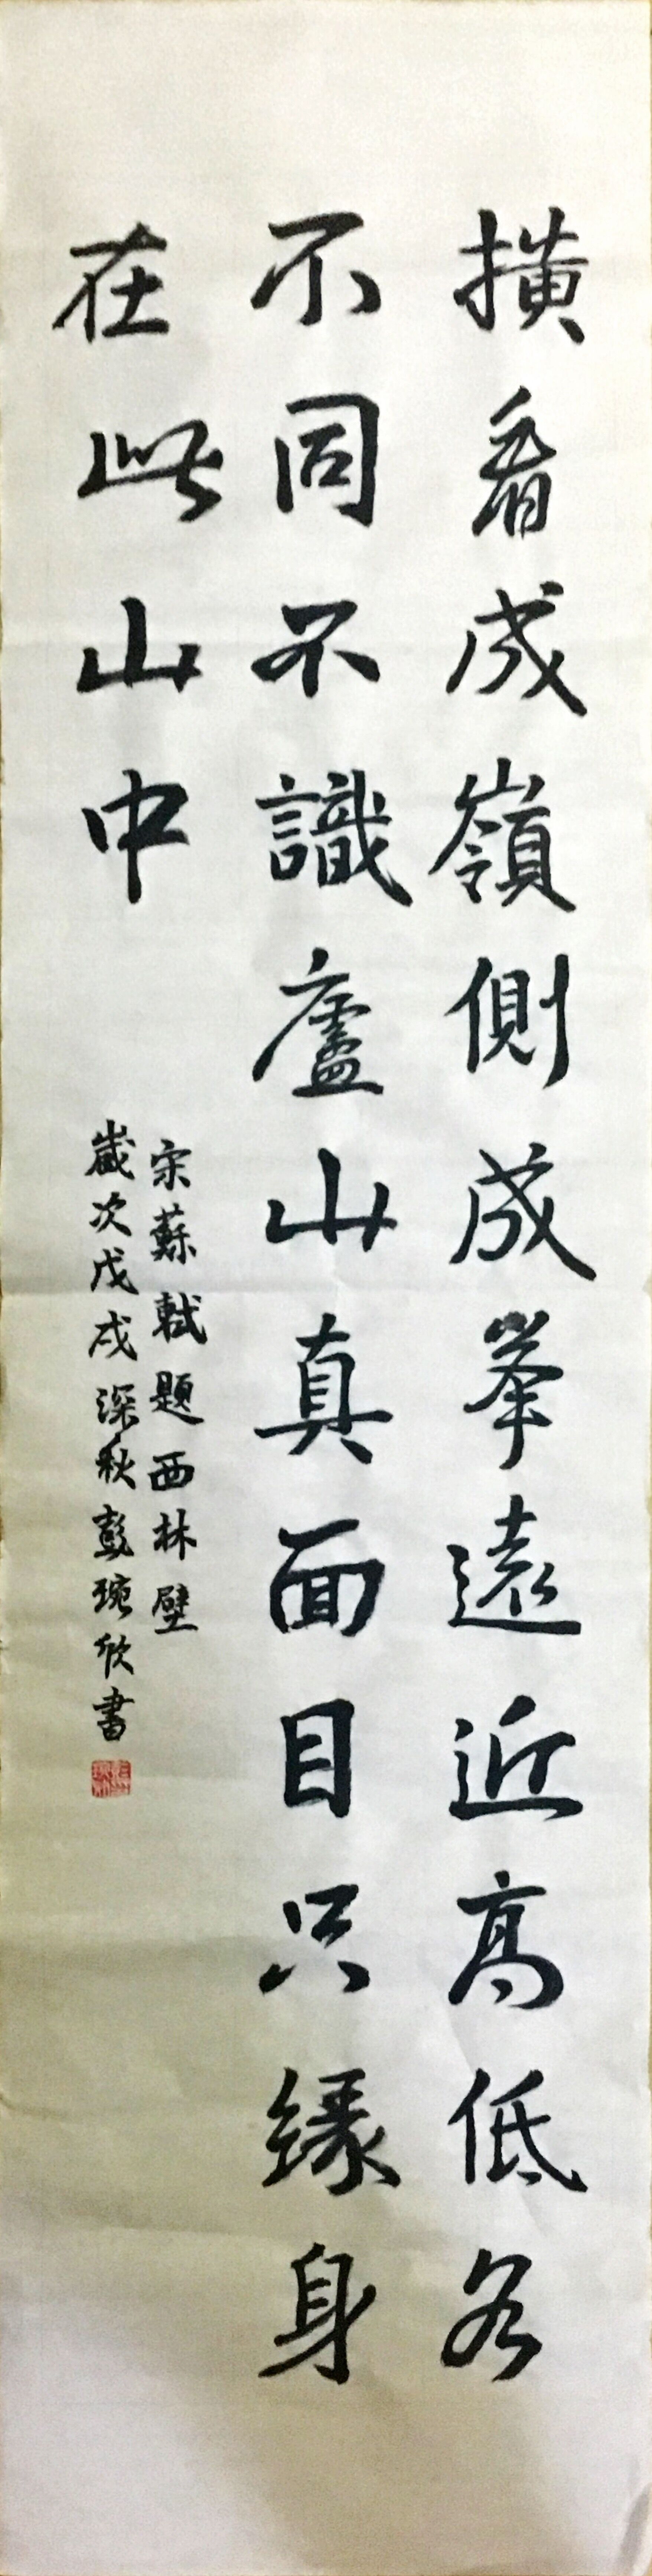 橫看成嶺側成峯遠近高低各
不同不識廬山真面目只緣身
在此山中
宋蘇軾題西林壁
歲次戊戌深秋彭琬欣書